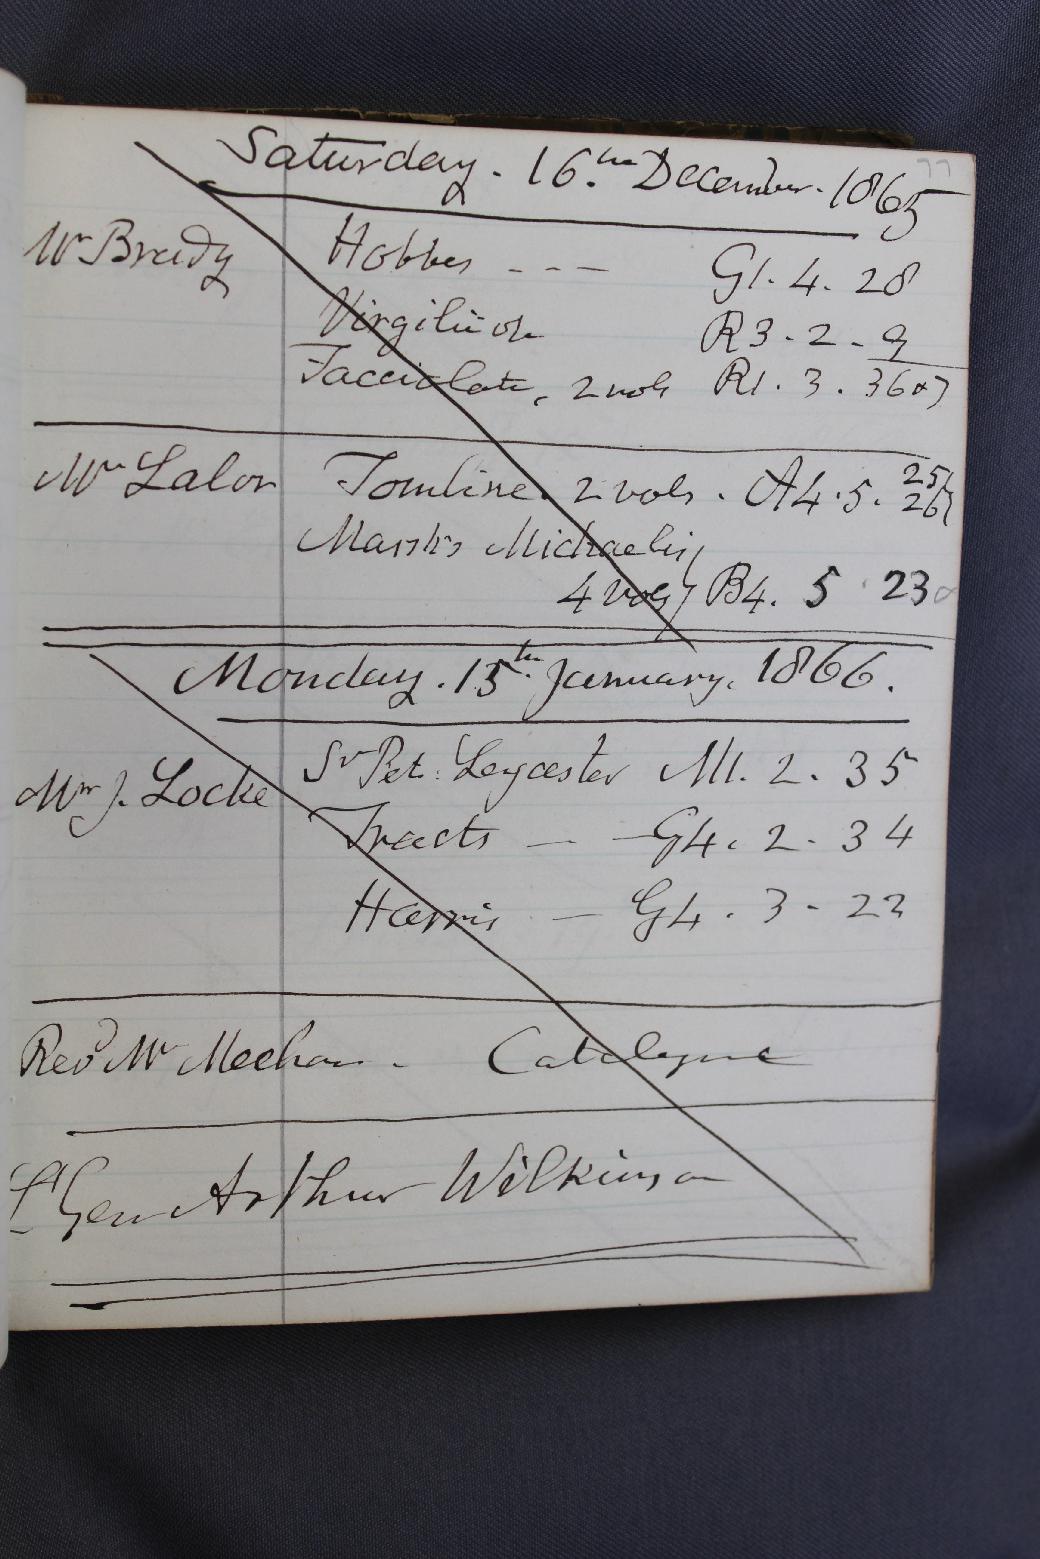 77
Saturday. 16.th December. 1865
Mr Brady Hobbes --- G1. 4. 28
R3. 2. 9
Facciolate, 2 vols R1. 3. 36 & 7
Mr Lalor Tomline. 2 vols. A4. 5. 25
26
Marsh's Michaelis
4 vols B4. 5 23
Monday. 15th January. 1866.
Mr J. Locke Sr Pet: Leycester M1. 2. 35
Tracts — G4. 2. 34
Harris — G4. 3. 22
Revd Mr Meehan. Catalogue
Lt Gen Arthur Wilkinson